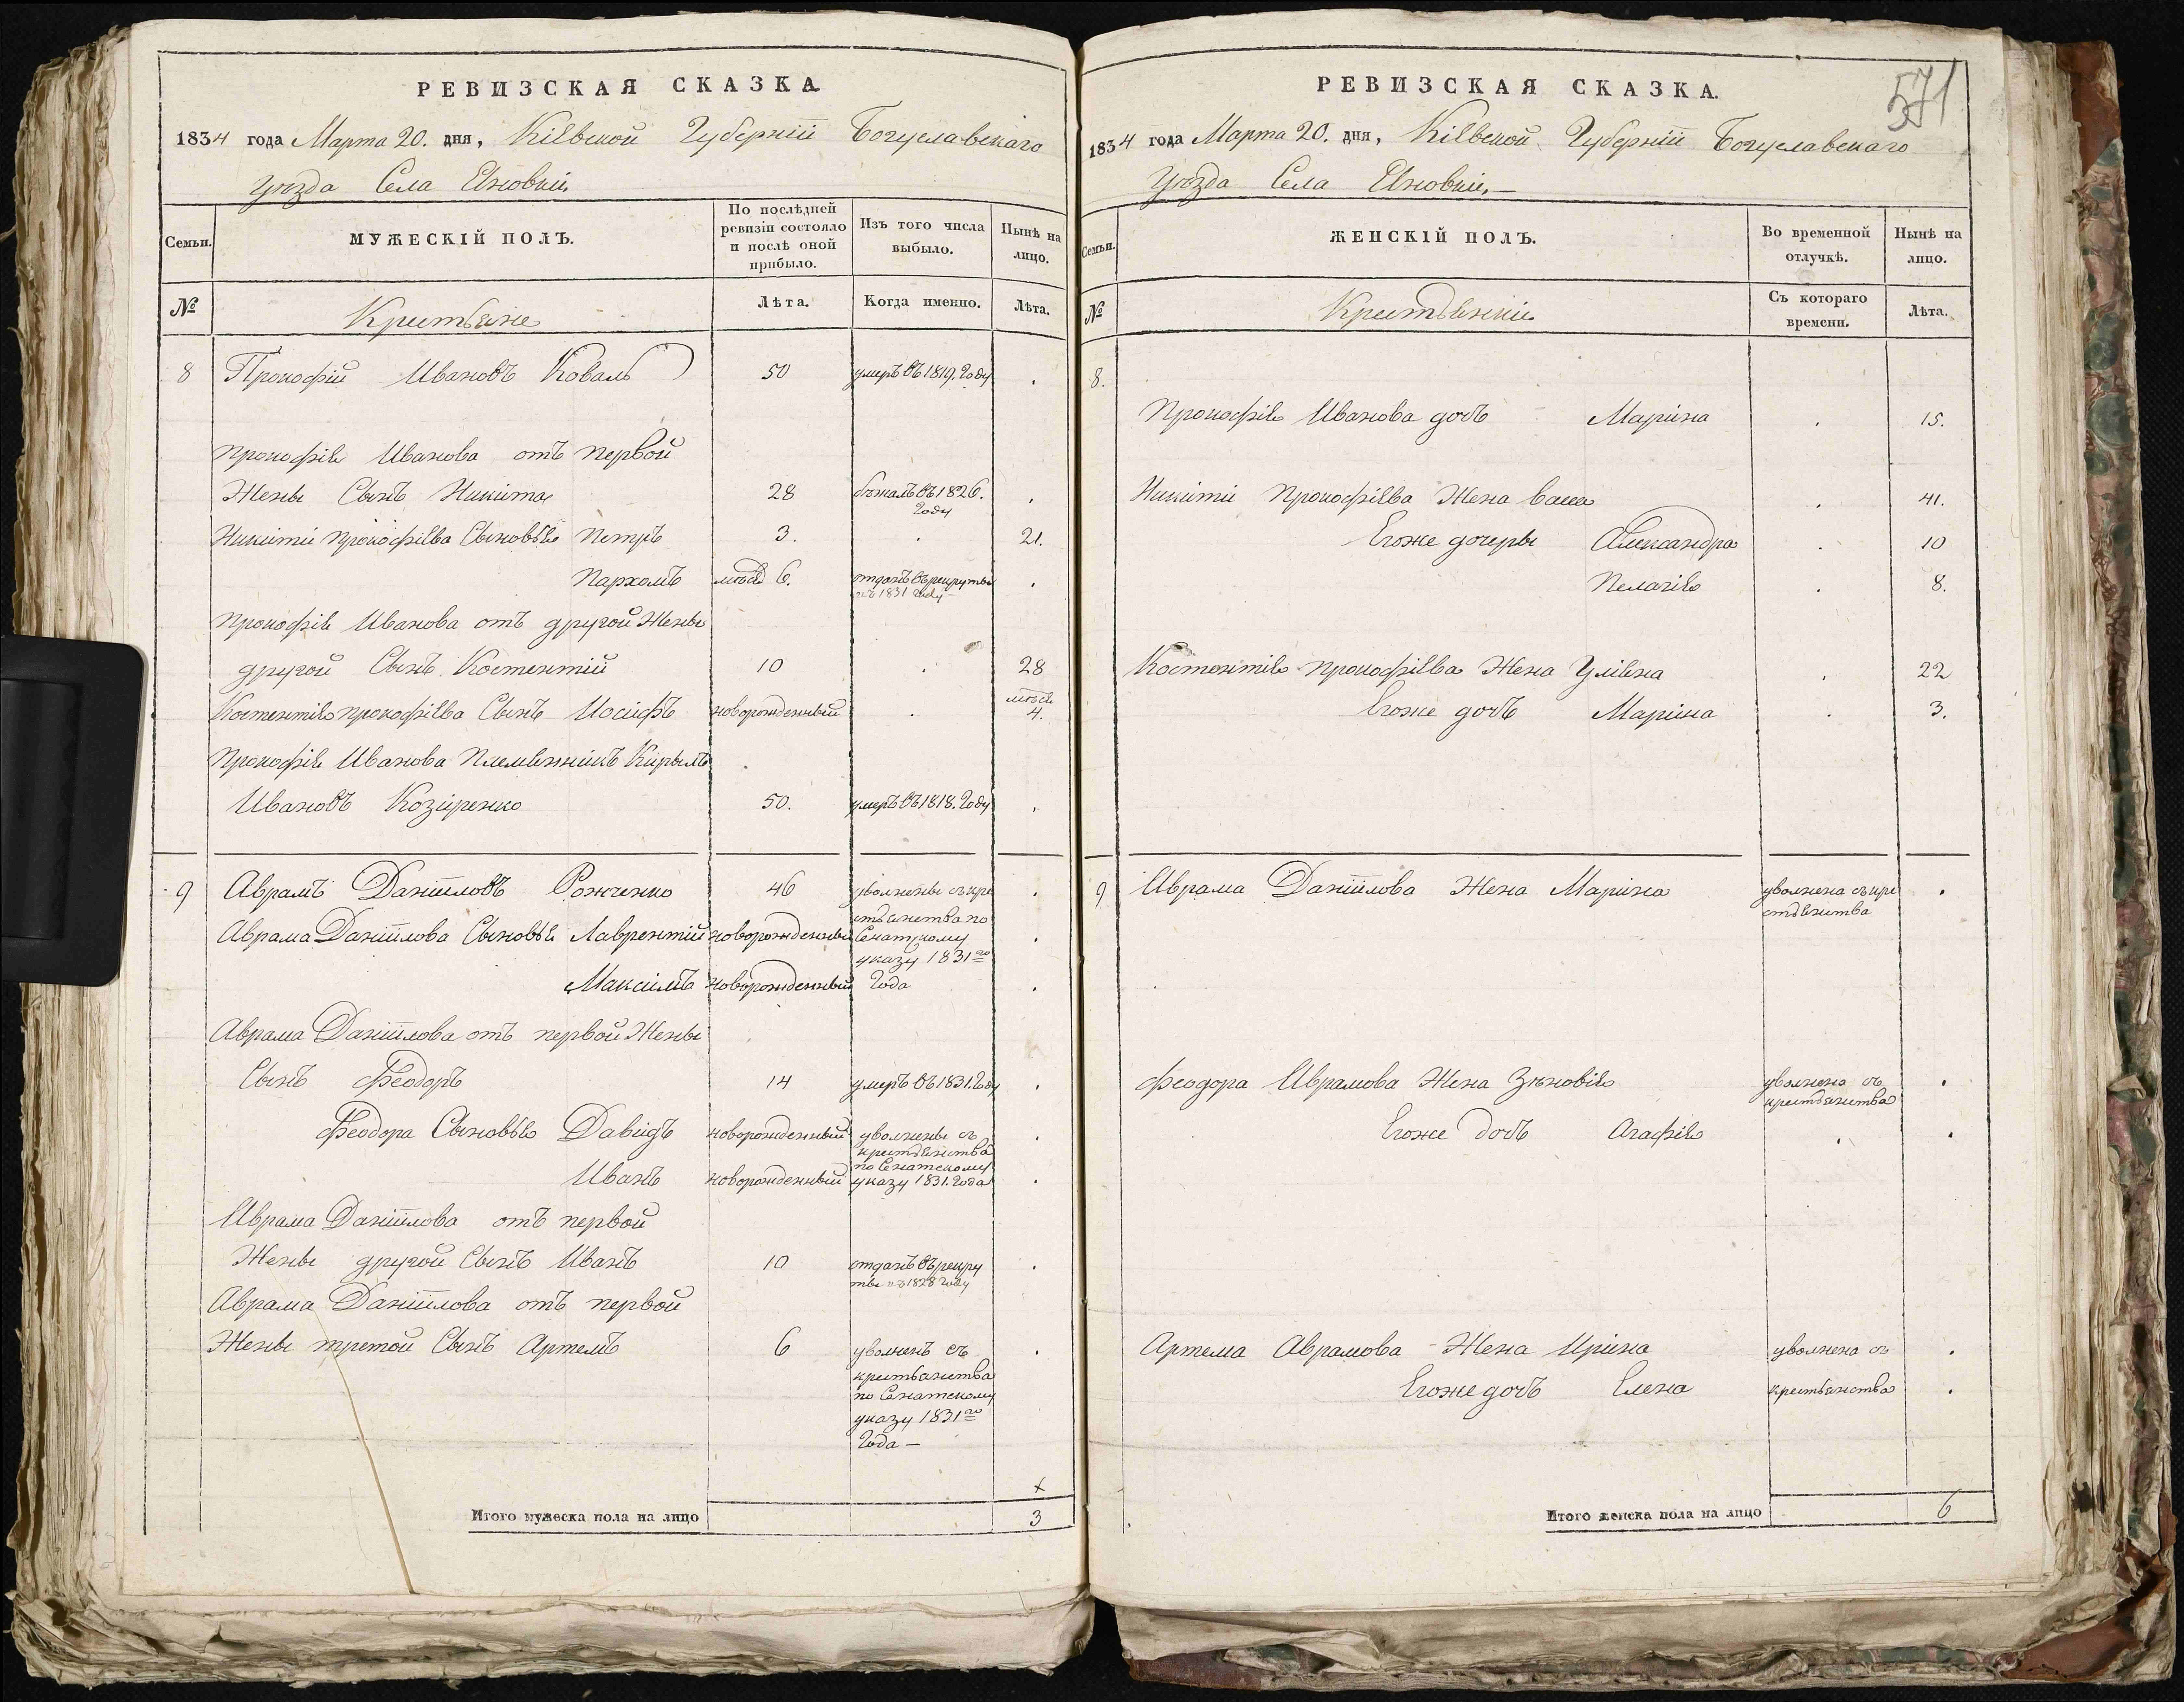 РЕВИЗСКАЯ СКАЗКА
1834 года Марта 20. дня, Кіевской Губерніи Богуславскаго
уѣзда Села
Семьи.
МУЖЕСКІЙ ПОЛЪ.
По послѣдней ревизіи состояло и послѣ оной прибыло.
Изъ того числа выбыло.
Нынѣ на лицо.
№
Крестьяне
Лѣта.
Когда именно.
Лѣта.
8 Прокофій Ивановъ Коваль 50 умеръ въ 1819. Году .
Прокофія Иванова отъ первой
Жены Сынъ Никита 28 бѣжалъ въ 1826. Году .
Никити Прокофіева Сыновья Петръ 3. . 21.
Пархомъ 6. отданъ въ рекруты въ 1831 Году .
Прокофія Иванова отъ другой Жены
другой Сынъ Костентій 10 . 28
Костентія Прокофіева Сынъ Иосифъ новорожденный . 4.
Прокофія Иванова Племянникъ Кирылъ
Ивановъ Козиренко 50. умеръ въ 1818. Году .
9 Аврамъ Даниловъ Рожченко 46 уволнены съ кре
стьянства по
Аврама Данилова Сыновья Лаврентій новорожденный Сенатскому
указу 1831го
Максимъ новорожденный Года .
Аврама Данилова отъ первой Жены
Сынъ Феодоръ 14 умеръ въ 1831. Году .
Феодора Сыновья Давидъ новорожденный уволнены съ
крестьянства
по Сенатскому
Иванъ новорожденный указу 1831. Года .
Аврама Данилова отъ первой
Жены другой Сынъ Иванъ 10 отданъ въ рекру
ты въ 1828 Году
Аврама Данилова отъ первой
Жены третой Сынъ Артемъ 6 уволненъ съ
крестьянства
по Сенатскому
указу 1831го
Года —
Итого мужеска пола на лицо 3
571
РЕВИЗСКАЯ СКАЗКА.
1834 года Марта 20. дня, Кіевской Губерніи Богуславскаго
Уѣзда Села
Семьи.
ЖЕНСКІЙ ПОЛЪ.
Во временной отлучкѣ.
Нынѣ на лицо.
№
Крестьянки
Съ котораго времени.
Лѣта.
8.
Прокофія Иванова дочь Марина . 15.
Никити Прокофіева Жена . 41.
Егоже дочеры Александра . 10
Пелагія . 8.
Костентія Прокофіева Жена Уліяна . 22
Егоже дочь Марина . 3.
9 Аврама Данилова Жена Марина уволнена съ кре
стьянства
Феодора Аврамова Жена Зѣновія уволнена съ
крестьянства
Егоже дочь Агафія . .
Артема Аврамова Жена Ирина уволнена съ .
Егоже дочь Елена крестьянства .
Итого женска пола на лицо 6